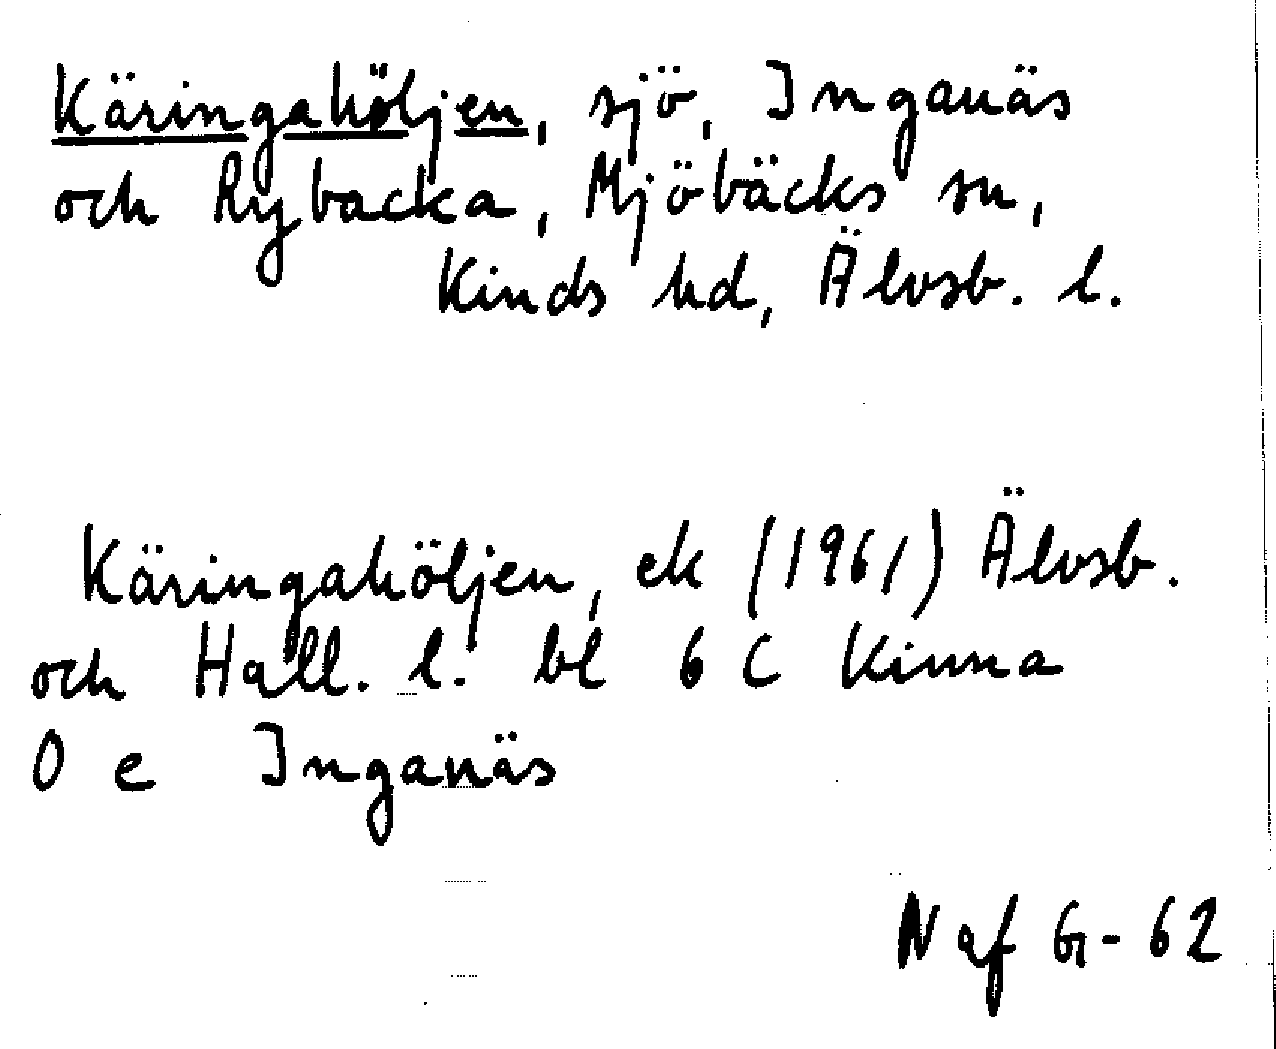 Käringahöljen, sjö, Inganäs
och Rybacka, Mjöbäcks sn,
Kinds hd, Älvsb. l.
Käringahöljen, ek (1961) Älvsb.
och Hall. l. bl 6 C Kinna
O e Inganäs
N af G-62